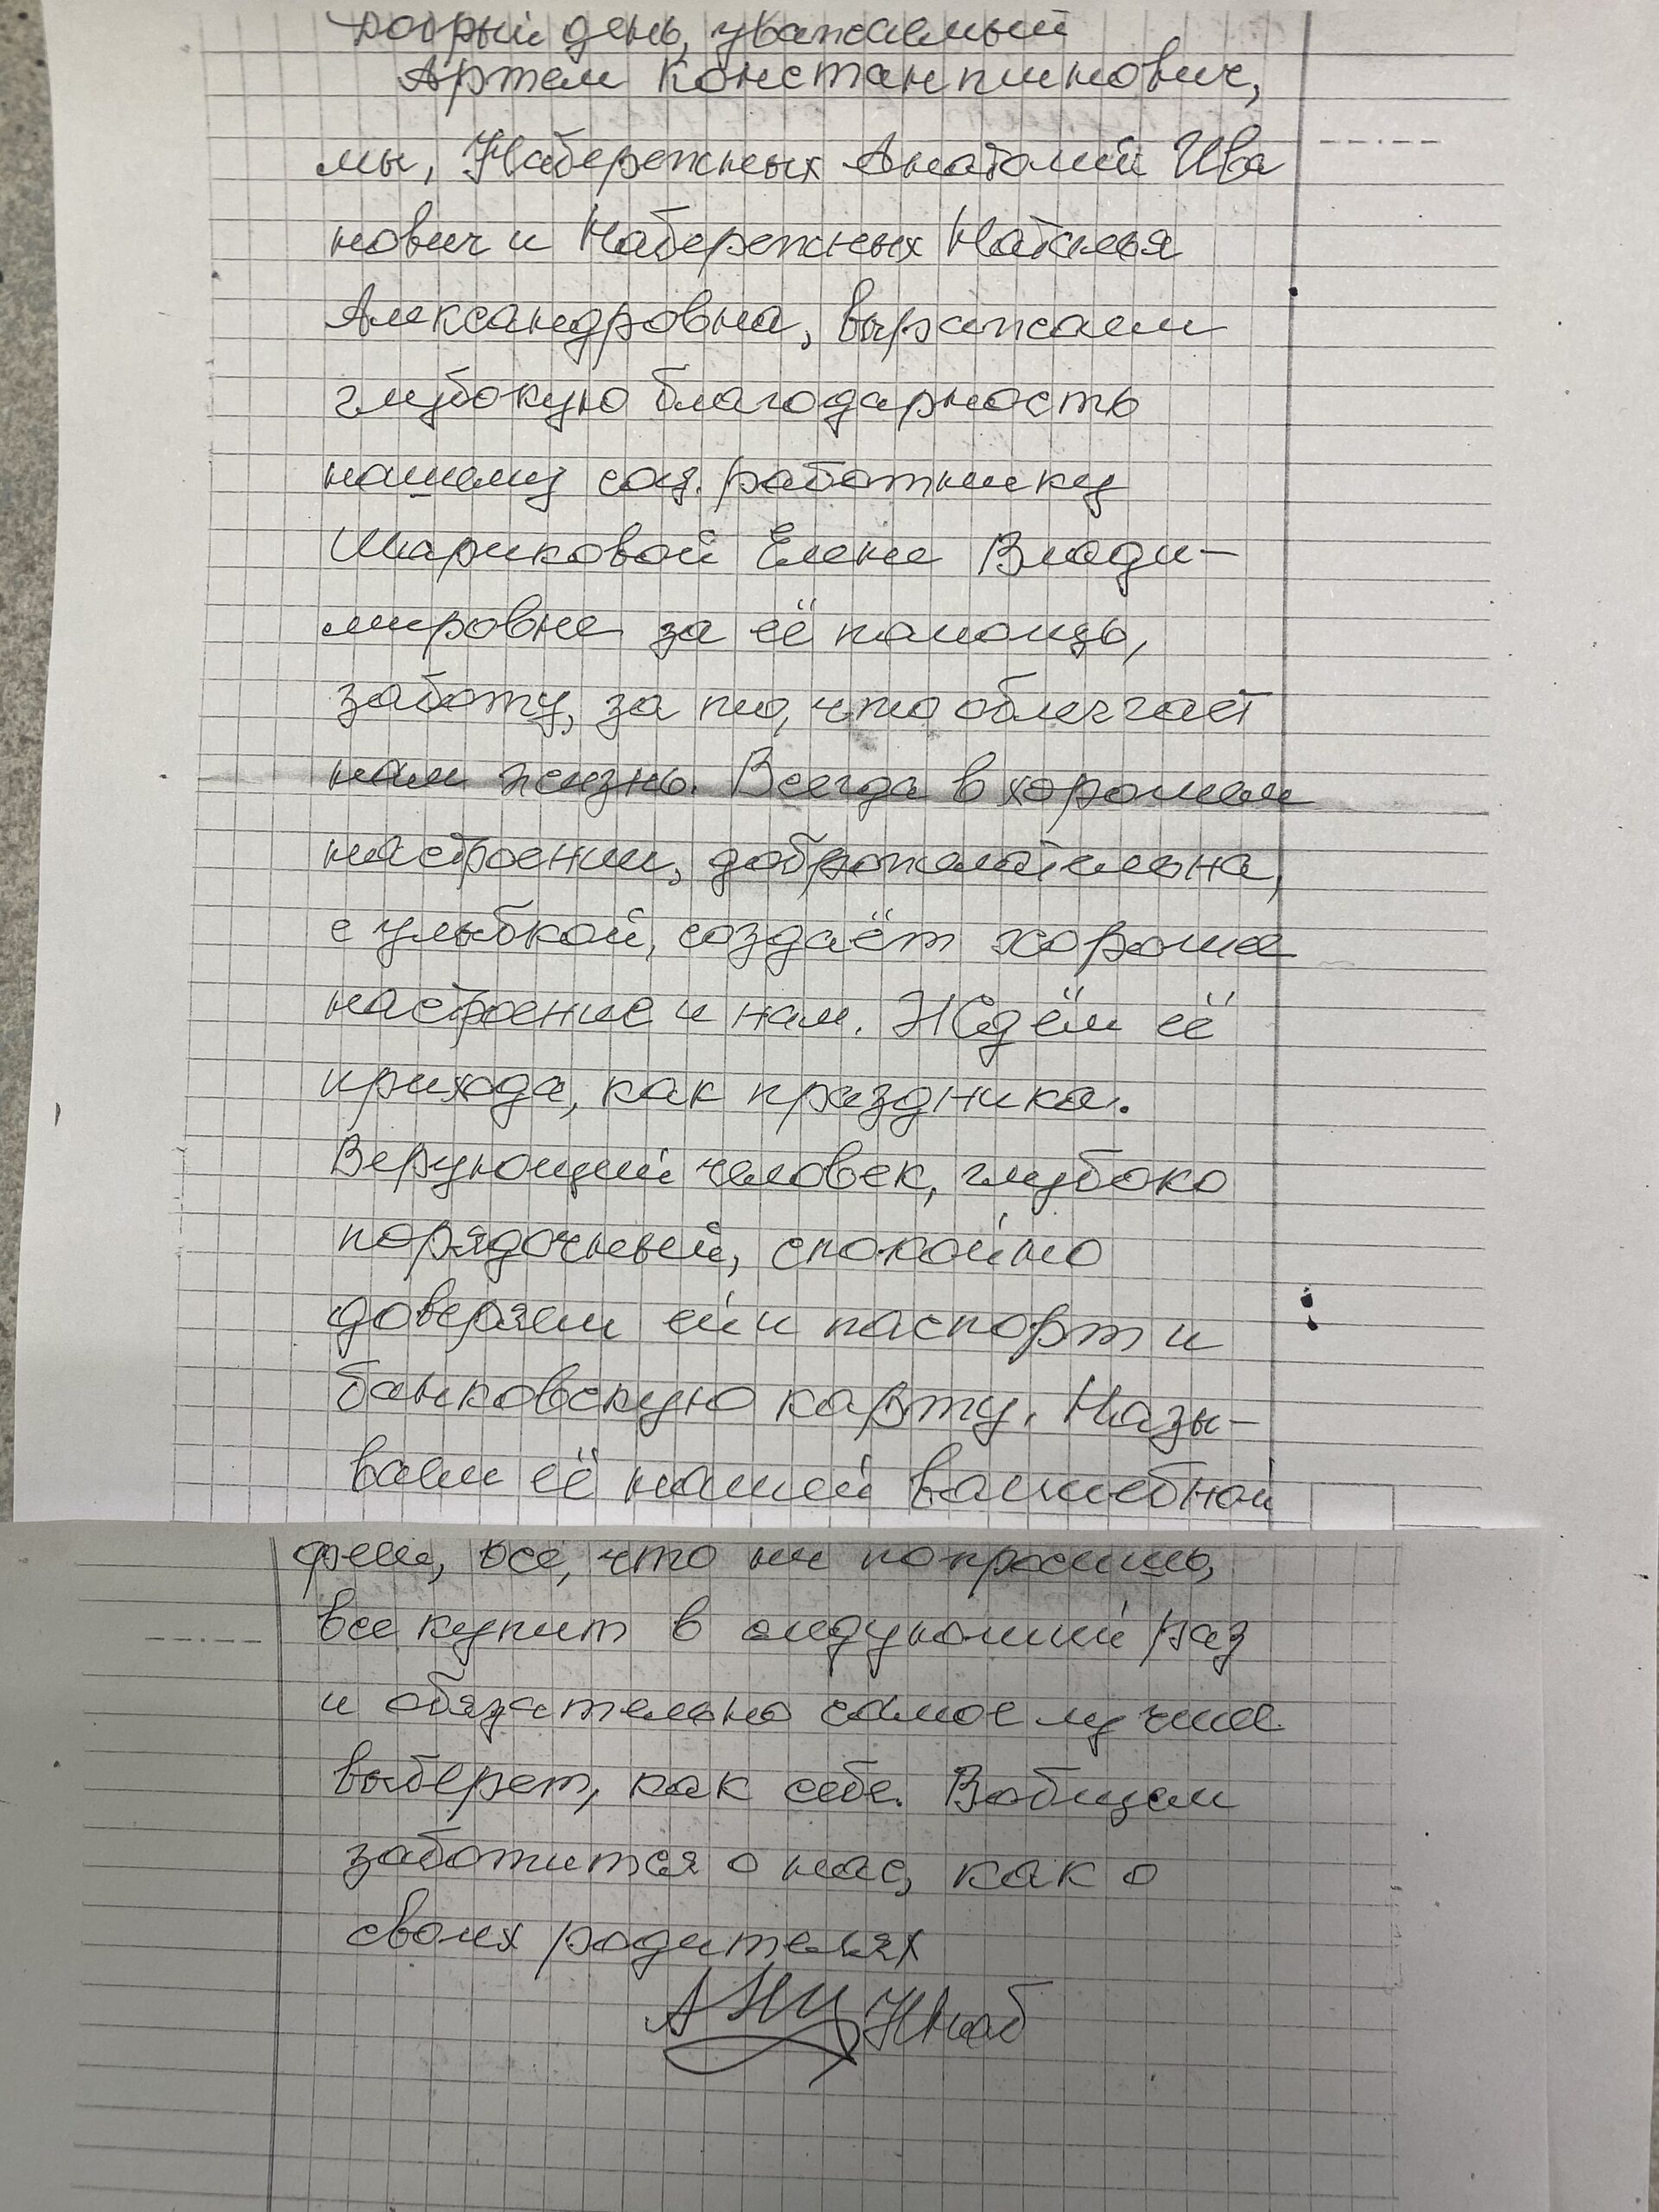 Добрый день, уважаемый
Артем Константинович,
мы, Набережных Анатолий Ива
нович и Набережных Наталья
Александровна, выражаем
глубокую благодарность
нашему соц. работнику
Шариковой Елене Влади-
мировне за её помощь,
заботу, за то, что облегчает
нам жизнь. Всегда в хорошем
настроении, доброжелательна,
с улыбкой, создаёт хорошее
настроение и нам. Ждём её
прихода, как праздника.
Верующий человек, глубоко
порядочный, спокойно
доверяем ей и паспорт и
банковскую карту. Назы-
ваем её нашей волшебной
феей, все, что ни попросишь,
все купит в следующий раз
и обязательно самое лучшее
выберет, как себе. Вобщем
заботится о нас, как о
своих родителях